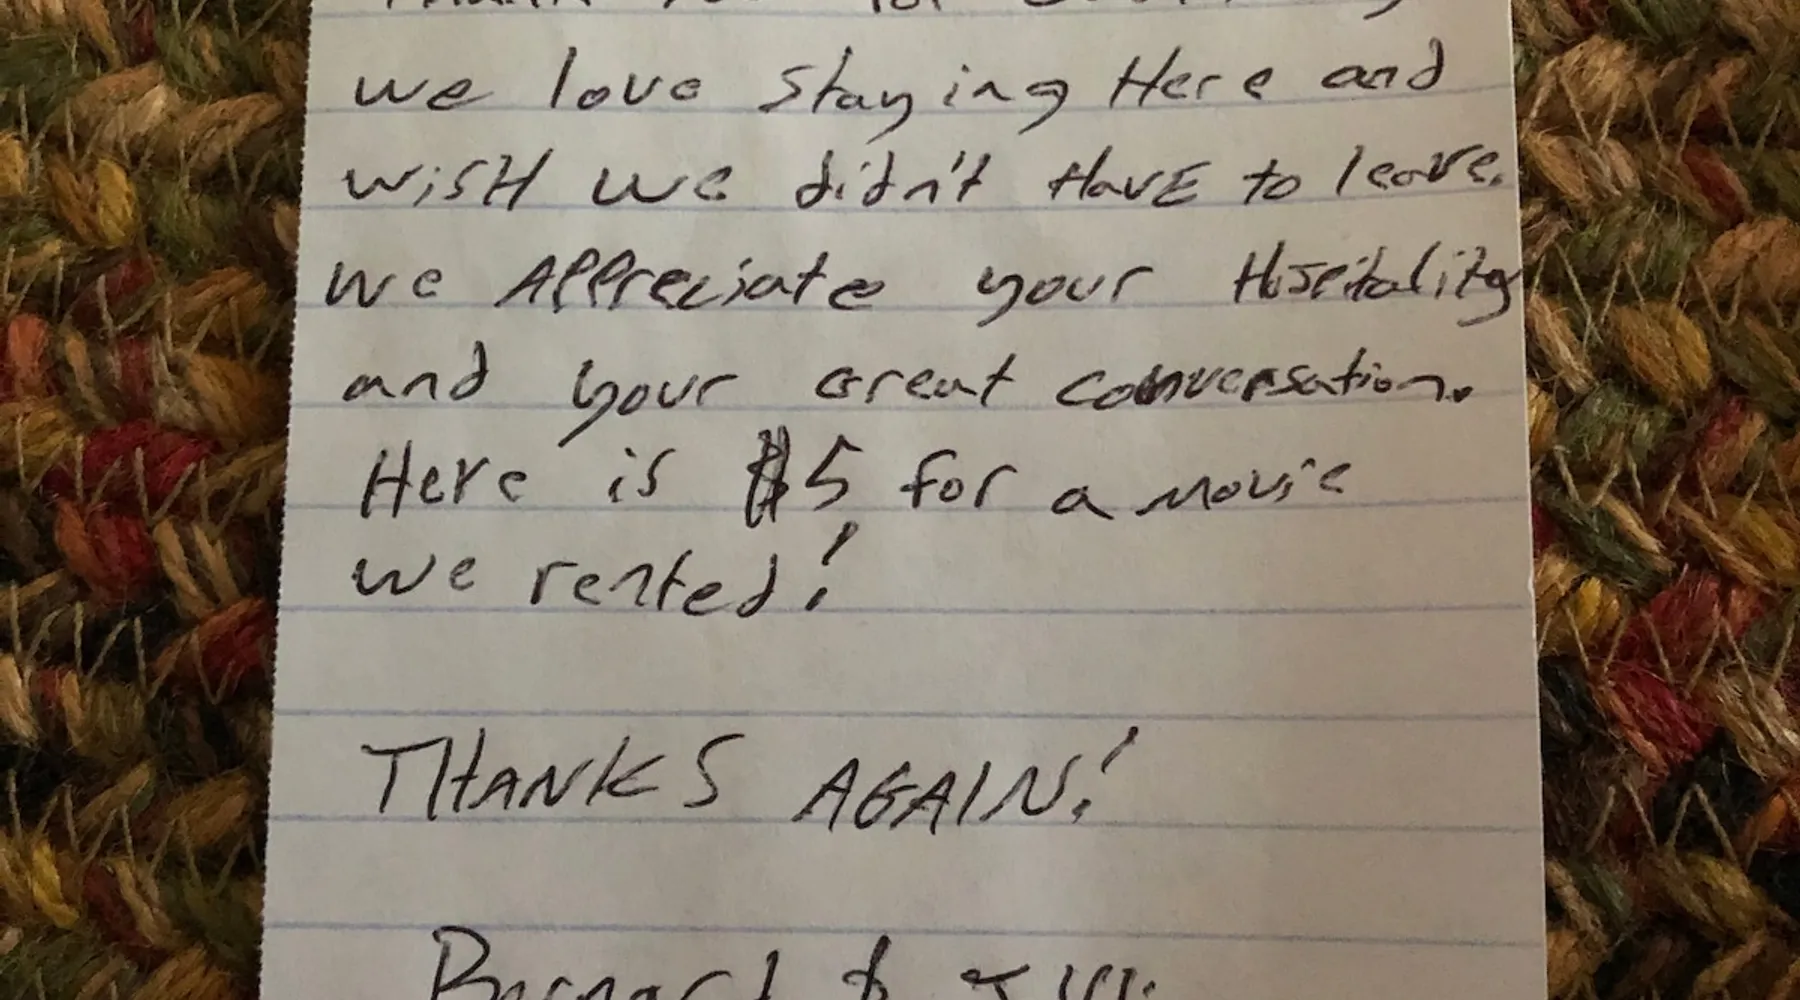 Thank You for
we love staying Here and
wisH we didn't HavE to leave.
we Appreciate your Hospitality
and your Great conversation.
Here is $5 for a movie
we rented!
THANKS AGAIN!
Bernard &